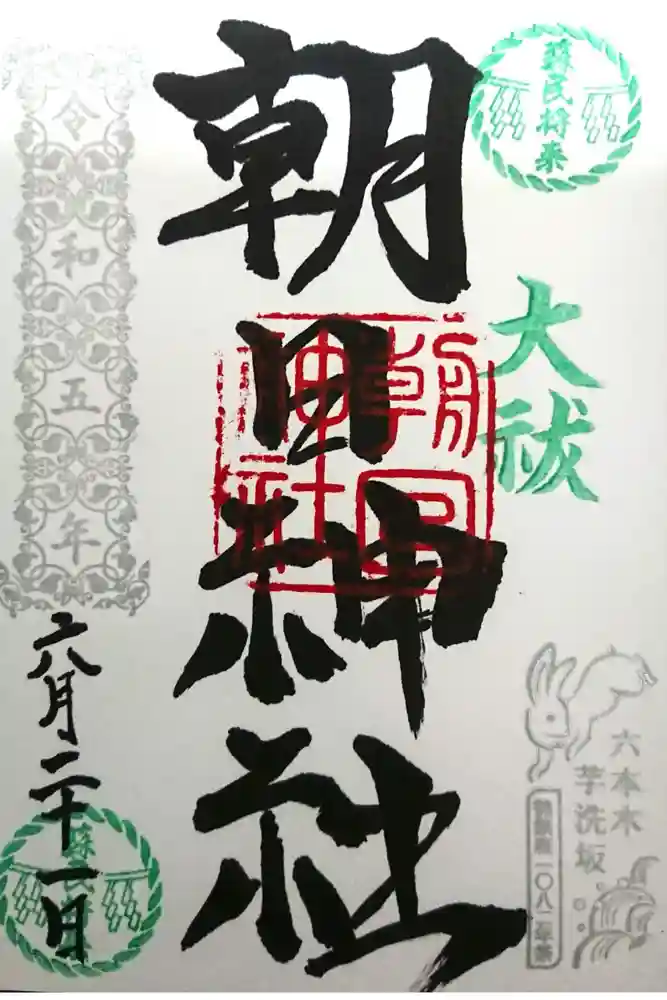 蘇民将来
大祓
朝日神社
朝日
神社
六本木
芋洗坂
一〇八一年祭
令和五年
六月二十一日
蘇民将来